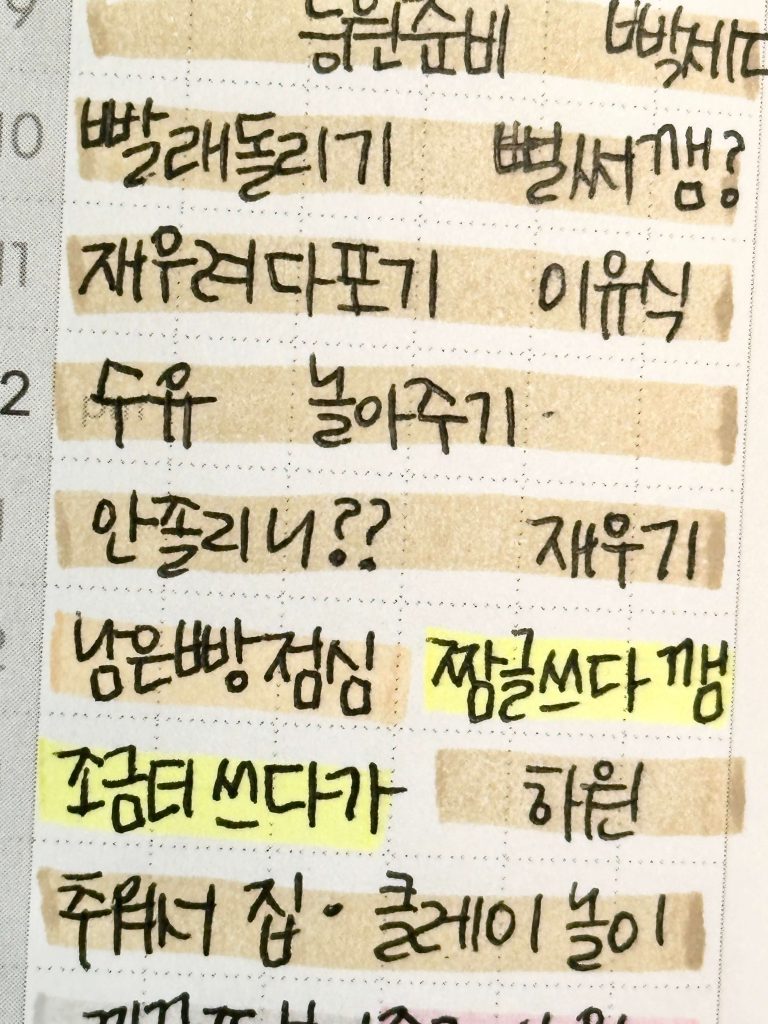 9 등원준비
10 빨래돌리기 뻘써 깸?
11 재우려다포기 이유식
12 pm 두유 놀아주기
1 안졸리니?? 재우기
2 남은빵 점심 짬글쓰다 깸
조금더 쓰다가 하원
추워서 집 · 클레이 놀이